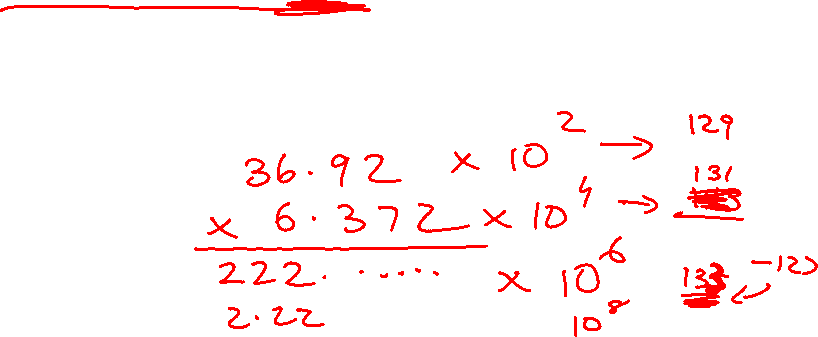 36.92 × 10² → 129
× 6.372 × 10⁴ → 131
222....... × 10⁶ 133 -127
2.22 10⁸